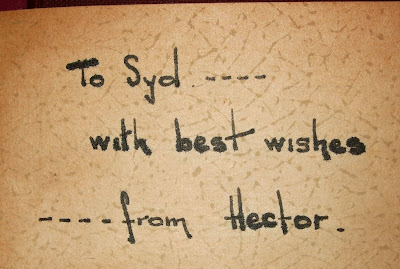 To Syd ----
with best wishes
----from Hector.